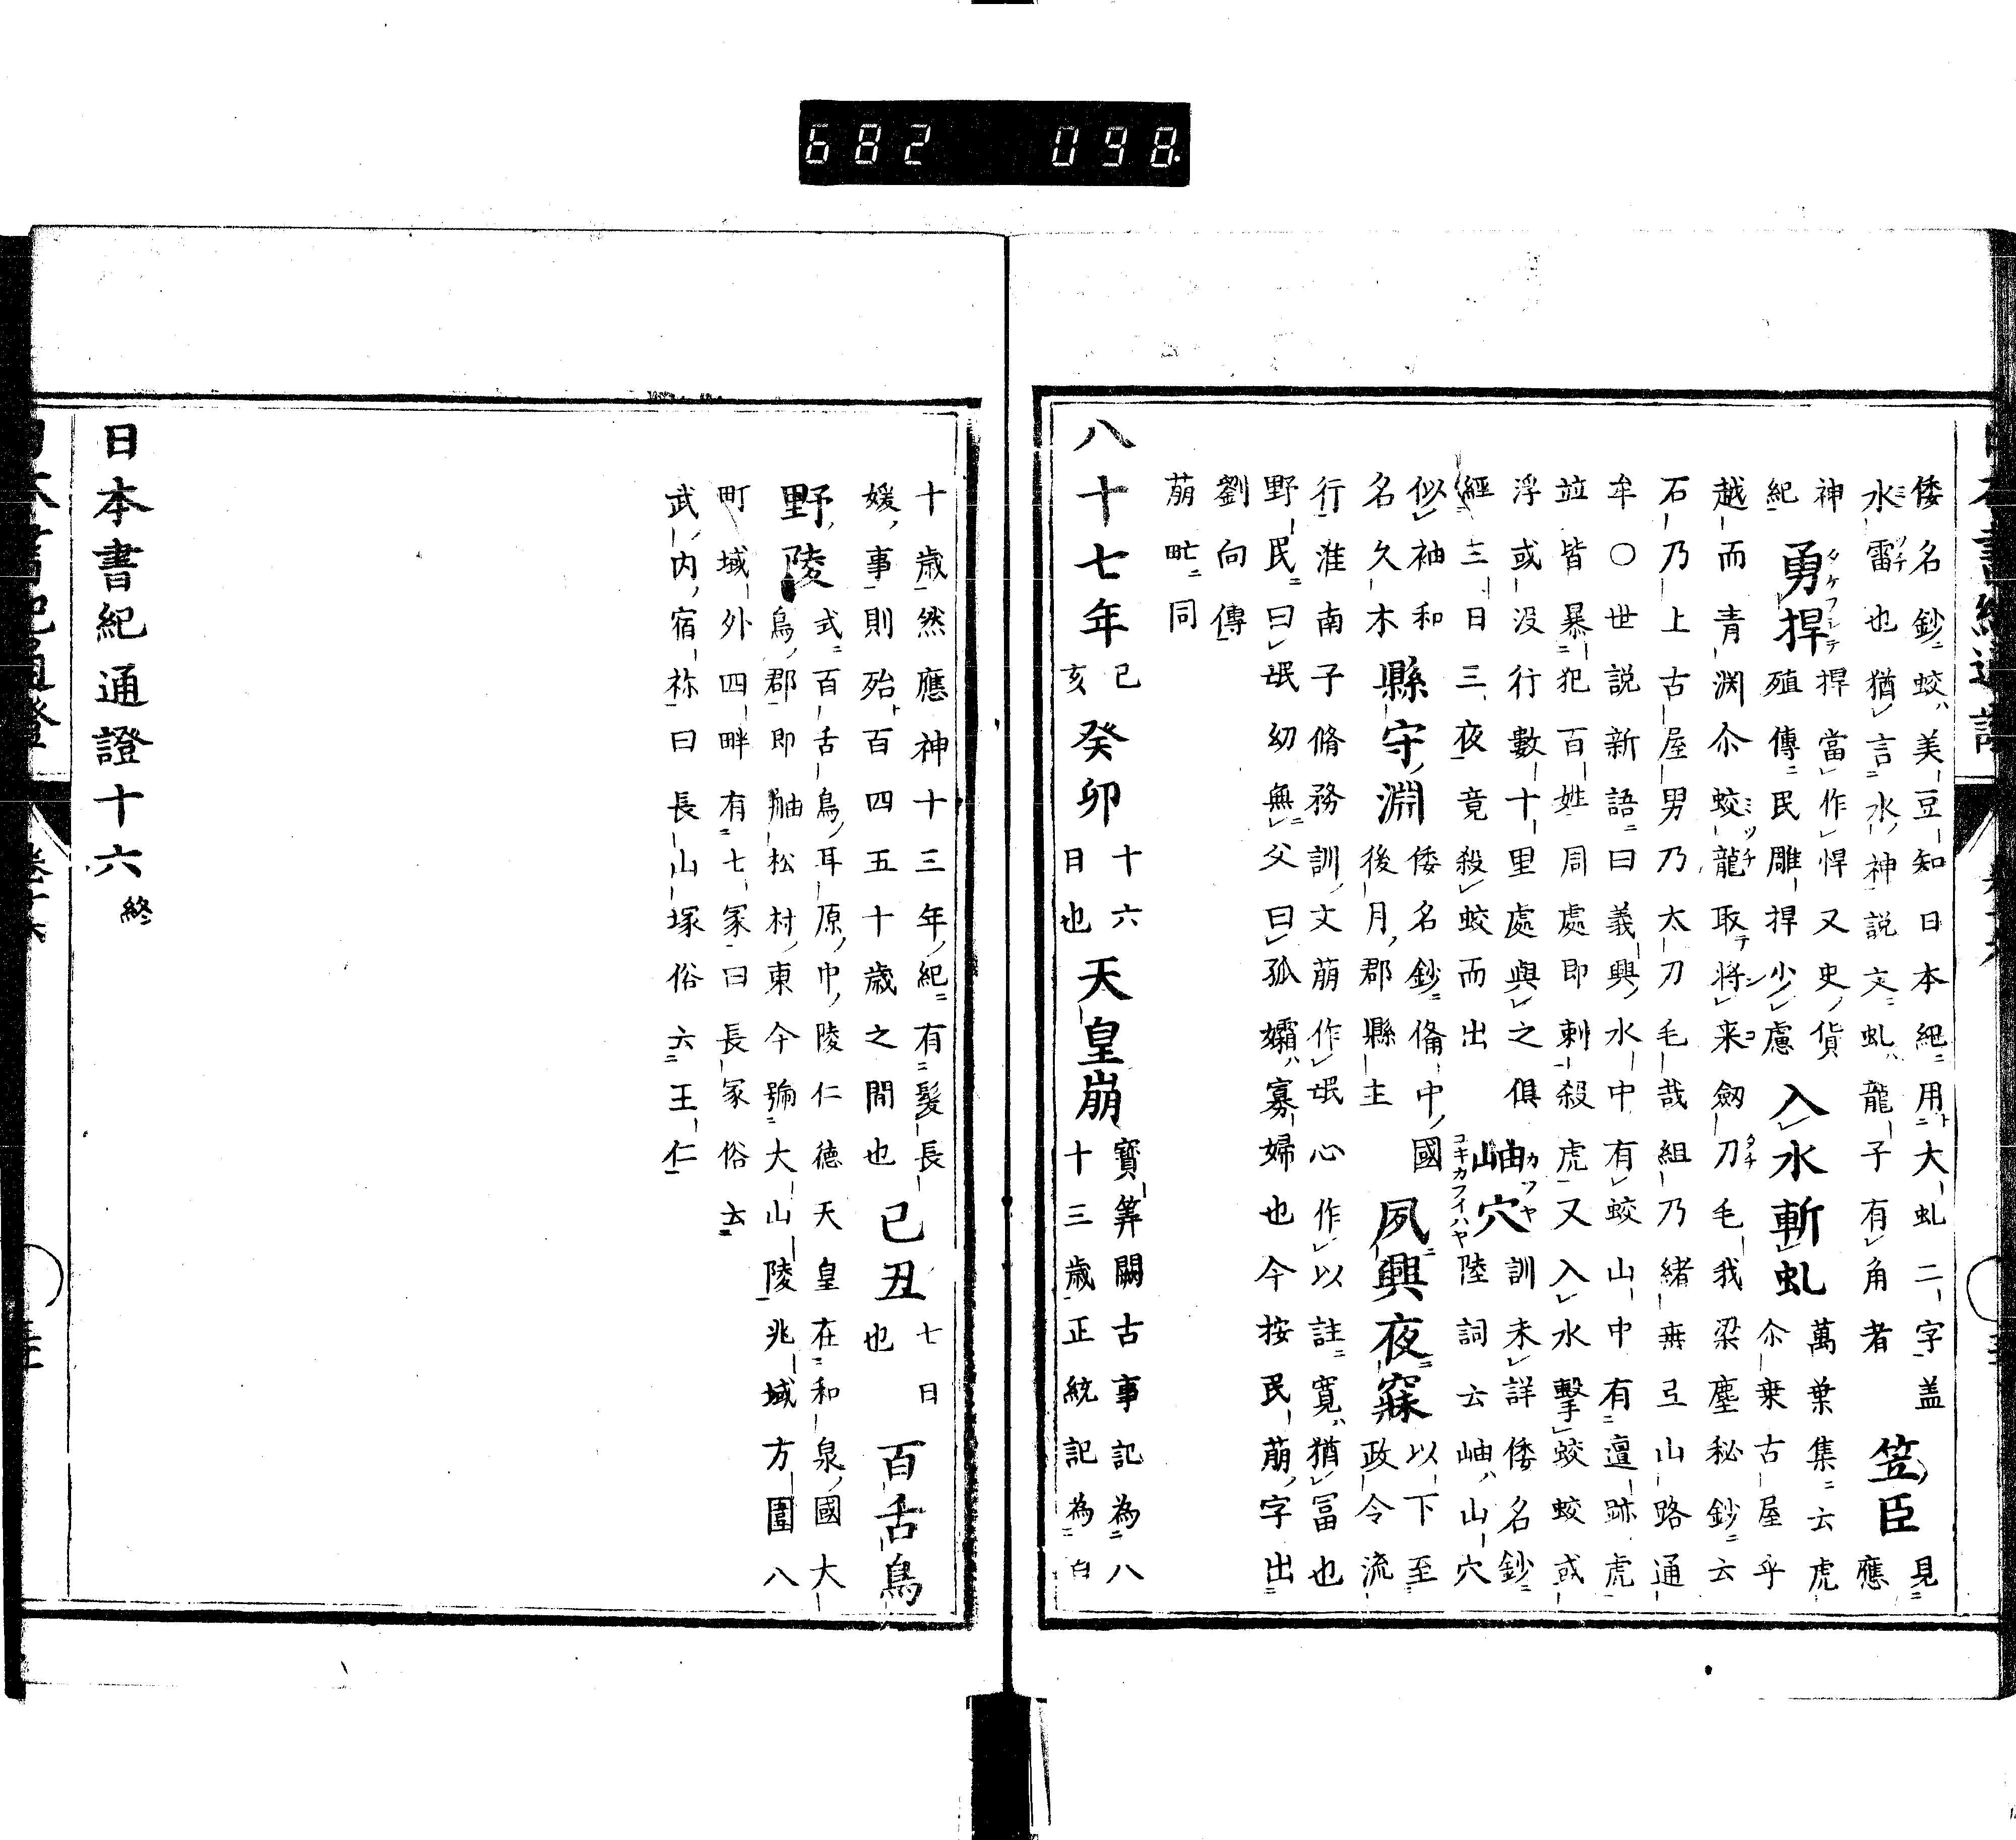 倭名鈔蛟美豆知日本紀用大虬二字盖
水雷也猶言水神説文虬龍子有角者
笠臣 見應
神紀
勇捍
捍當作悍又史貨
殖傳民雕捍少慮
入水斬虬
萬葉集云虎
尒乗古屋乎
越而青渕尒蛟龍取将来劔刀毛我梁塵秘鈔云
石乃上古屋男乃太刀毛哉組乃緒無弖山路通
牟〇世説新語曰義興水中有蛟山中有邅跡虎
並皆暴犯百姓周處即刺殺虎又入水擊蛟蛟或
浮或没行數十里處與之俱
經三日三夜竟殺蛟而出
岫穴
訓未詳倭名鈔
陸詞云岫山穴
似袖和
名久木
縣守淵
倭名鈔備中國
後月郡縣主
夙興夜寐
以下至
政令流
行淮南子脩務訓文萠作氓心作以註寛猶冨也
野民曰氓幼無父曰孤孀寡婦也今按民萠字出
劉向傳
萠甿同
八十七年 己亥 癸卯 十六日也 天皇崩
寳筭闕古事記為八
十三歳正統記為百
十歳然應神十三年紀有髮長
媛事則殆百四五十歳之間也
己丑 七日也 百舌鳥
野陵
式百舌鳥耳原中陵仁徳天皇在和泉國大
鳥郡即舳松村東今號大山陵兆域方圍八
町域外四畔有七冢曰長冢俗云
武内宿祢曰長山塚俗云王仁
日本書紀通證十六 終
682 098